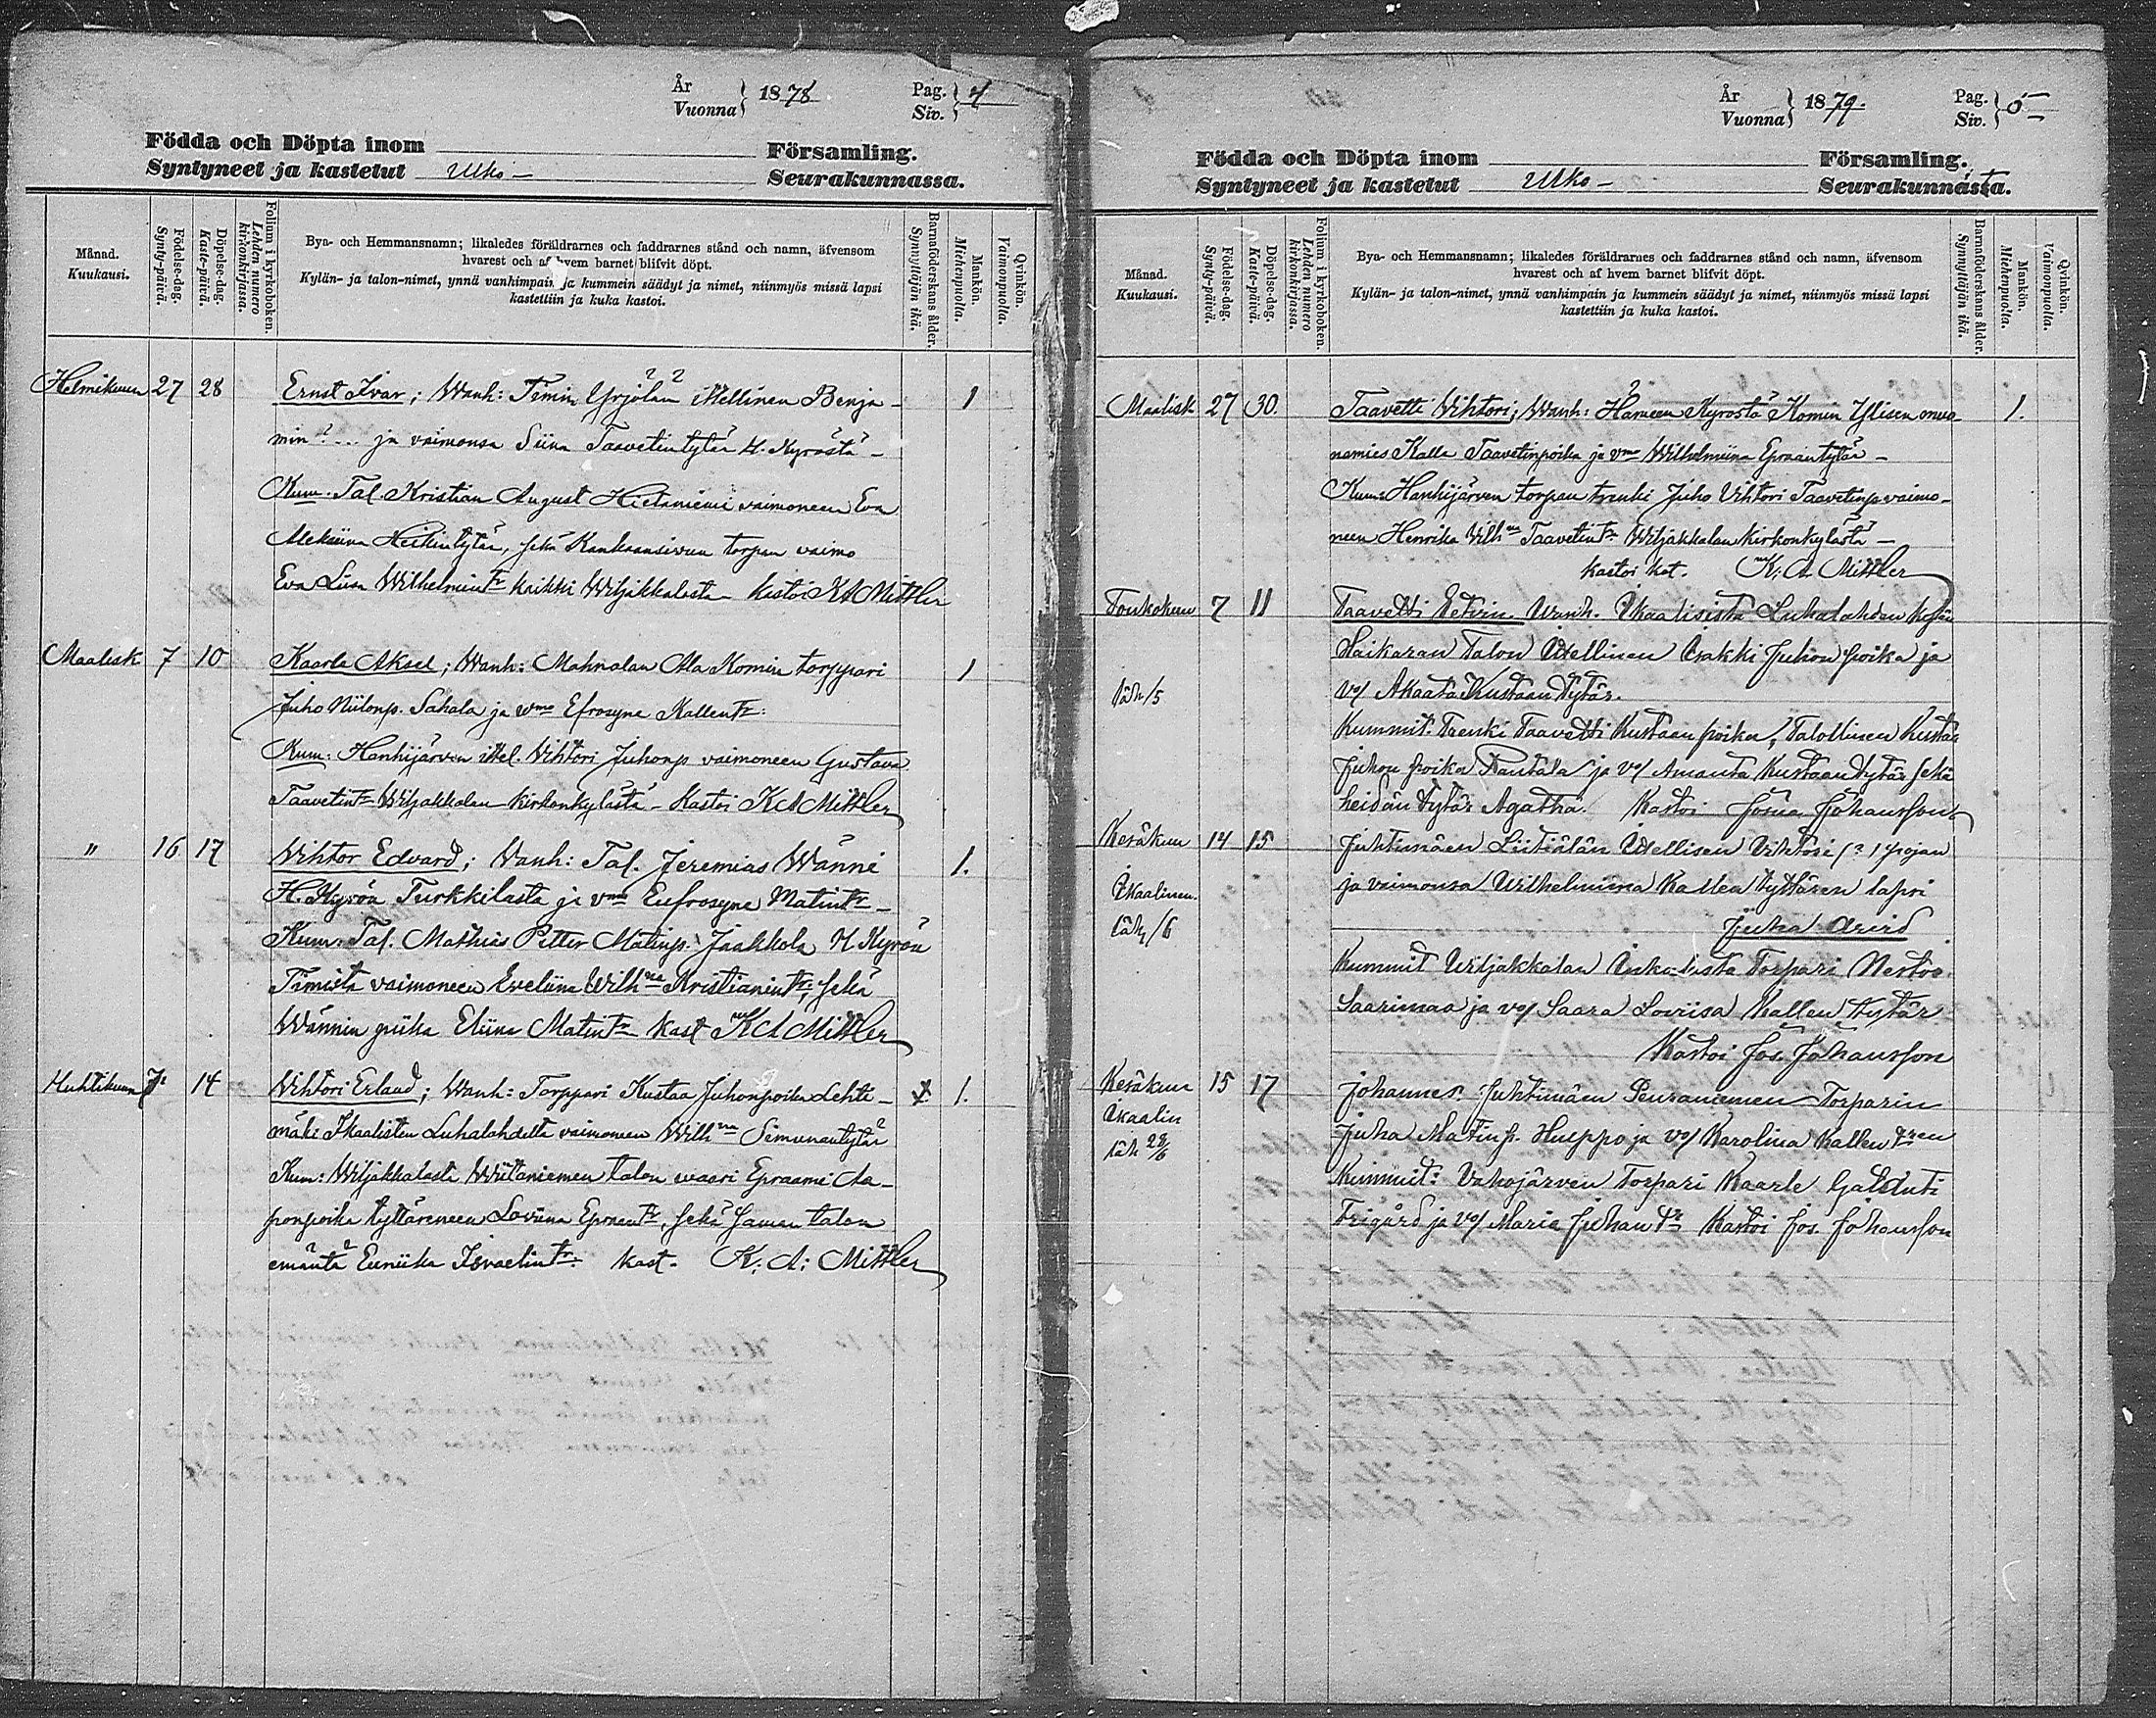 År
Vuonna } 1878
Pag.
Siv. } 4
Födda och Döpta inom Församling.
Syntyneet ja kastetut Ulko- Seurakunnassa.
Månad.
Kuukausi.
Födelse-dag.
Synty-päivä.
Döpelse-dag.
Kaste-päivä.
Folium i kyrkoboken.
Lehden numero
kirkonkirjassa.
Bya- och Hemmansnamn; likaledes föräldrarnes och faddrarnes stånd och namn, äfvensom
hvarest och af hvem barnet blifvit döpt.
Kylän- ja talon-nimet, ynnä vanhimpain ja kummein säädyt ja nimet, niinmyös missä lapsi
kastettiin ja kuka kastoi.
Barnaföderskans ålder.
Synnyttäjän ikä.
Mankön.
Miehenpuolla.
Qvinkön.
Vaimonpuolla.
Helmikuun 27 28 Ernst Ivar; Wanh: Timin Yrjölän itsellinen Benja- 1
min? ... ja vaimonsa Siina Taavetintytär H. Kyröstä -
Kum. Tal. Kristian August Hietaniemi vaimoneen Eva
Heikintytär, sekä Kankaansivun torpan vaimo
Eva Liisa Wilhelmintr kaikki Wiljakkalasta - kastoi KA Mittler
Maalisk 7 10 Kaarle Aksel; Wanh: Mahnalan Ala Komin torppari 1
Juho Niilonp. Sahala ja vmo Efrosyne Kallentr:
Kum: Hanhijärven itsel. Vihtori Juhonp vaimoneen Gustava
Taavetintr Wiljakkalan kirkonkylästä - Kastoi KA Mittler
" 16 17 Vihtor Edvard; Vanh: Tal. Jeremias Wänni 1.
H. Kyrön Turkkilasta ja vmo Eufrosyne Matintr -
Kum: Tal. Mathias Petter Matinp. Jaakkola H Kyrön
Timistä vaimoneen Eveliina Wilhna Kristianintr, sekä
Wännin piika Eliina Matintr kast KA Mittler
Huhtikuun 7 14 Vihtori Erland; Wanh: Torppari Kustaa Juhonpoika Lehti- 1.
mäki Ikaalisten Luhalahdelta vaimoneen Wilhna Simunantytär
Kum: Wiljakkalasta Wiitaniemen talon waari Epraami Aa-
ponpoika tyttäreneen Loviina Epraentr, sekä saman talon
emäntä Euniika Israelintr. kast. K: A: Mittler
År
Vuonna } 1879.
Pag.
Siv. } 5
Födda och Döpta inom Församling.
Syntyneet ja kastetut Ulko- Seurakunnasta.
Månad.
Kuukausi.
Födelse-dag.
Synty-päivä.
Döpelse-dag.
Kaste-päivä.
Folium i kyrkoboken.
Lehden numero
kirkonkirjassa.
Bya- och Hemmansnamn; likaledes föräldrarnes och faddrarnes stånd och namn, äfvensom
hvarest och af hvem barnet blifvit döpt.
Kylän- ja talon-nimet, ynnä vanhimpain ja kummein säädyt ja nimet, niinmyös missä lapsi
kastettiin ja kuka kastoi.
Barnaföderskans ålder.
Synnyttäjän ikä.
Mankön.
Miehenpuolla.
Qvinkön.
Vaimonpuolla.
Maalisk 27 30. Taavetti Vihtori; Wanh: Hämeen Kyröstä Komin Ylisen 1.
Kalle Taavetinpoika ja vmo Wilhelmiina Epraantytär -
Kum: Hanhijärven torpan trenki Juho Vihtori Taavetinp vaimo-
neen Henrika Vilhna Taavetintr Wiljakkalan kirkonkylästä -
kastoi kot. K: A. Mittler
Toukokuu 7 11 Taavetti Vanh. Ikaalisista Luhalahden kylän
Haikaran Talon Itsellinen Isakki Juhon poika ja
läh /5 vo/ Akaata Kustaan tytär.
Kummit: Trenki Taavetti Kustaan poika, Talollinen Kustaa
Juhon poika Rautala ja vo/ Amanta Kustaan tytär sekä
heidän tytär Agatha. Kastoi Josua Johansson
Kesäkuu 14 15 Juhtimäen Itsellisen Vihtori (?) pojan
Ikaalinen. ja vaimonsa Wilhelmiina Kallen tyttären lapsi
läh /6 Juha Arvid
Kummit Viljakkalan Torpari Nestor
Saarimaa ja vo/ Saara Loviisa Kallen tytär
Kastoi Jos. Johansson
Kesäkuu 15 17 Johannes. Juhtimäen Peuraniemen Torparin
Ikaalin Juha Matinp. Huippo ja vo/ Karolina Kallen tren
läh 28/6 Kummit: Vahojärven Torpari Kaarle
Frigård ja vo/ Maria Juhan tr Kastoi Jos. Johansson